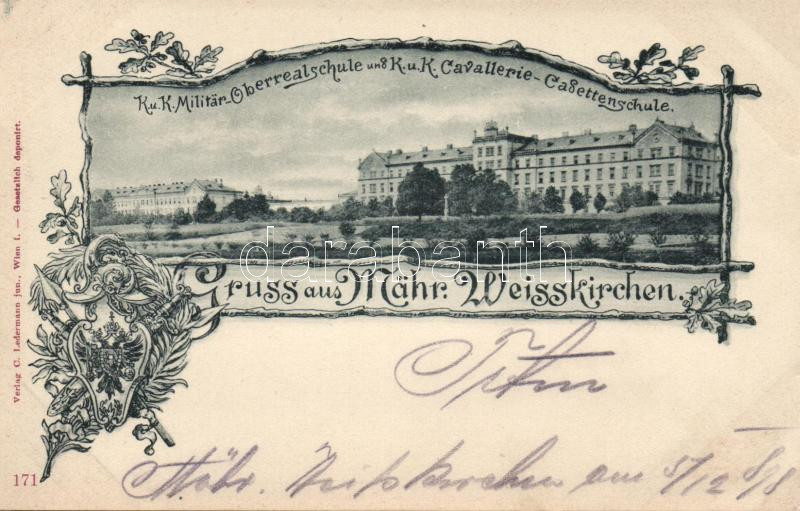 K.u.K. Militär-Oberrealschule und K.u.K. Cavallerie-Cadettenschule.
Gruss aus Mähr. Weisskirchen.
darabanth
Verlag C. Ledermann jun., Wien I. — Gesetzlich deponirt.
171
Mähr. Weißkirchen am 5/12 98